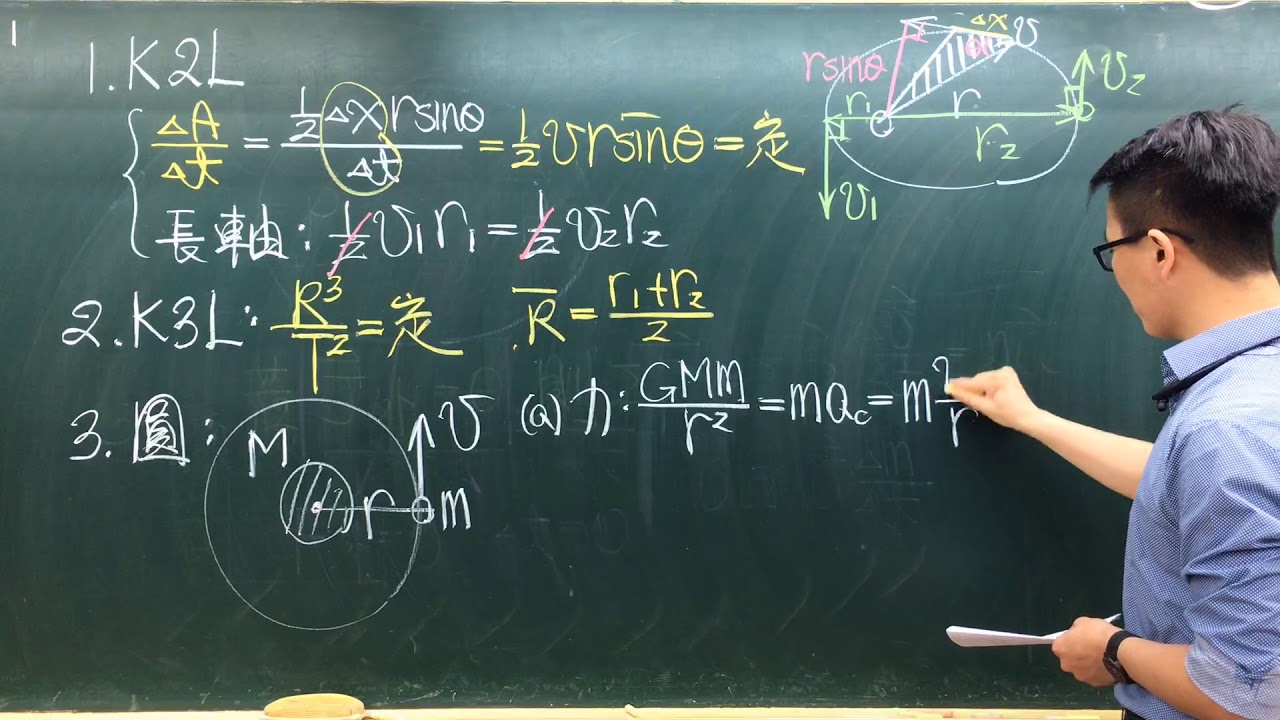 1
1. K2L
ΔA/Δt = ½Δx rsinθ/Δt = ½vrsinθ = 定
長軸：½v₁r₁ = ½v₂r₂
2. K3L: R³/T² = 定 R̅ = (r₁+r₂)/2
3. 圓：
(a) 力：GMm/r² = ma_c = m
r
M
r
m
v
rsinθ
Δx
θ
v
r₁
r
r₂
v₁
v₂